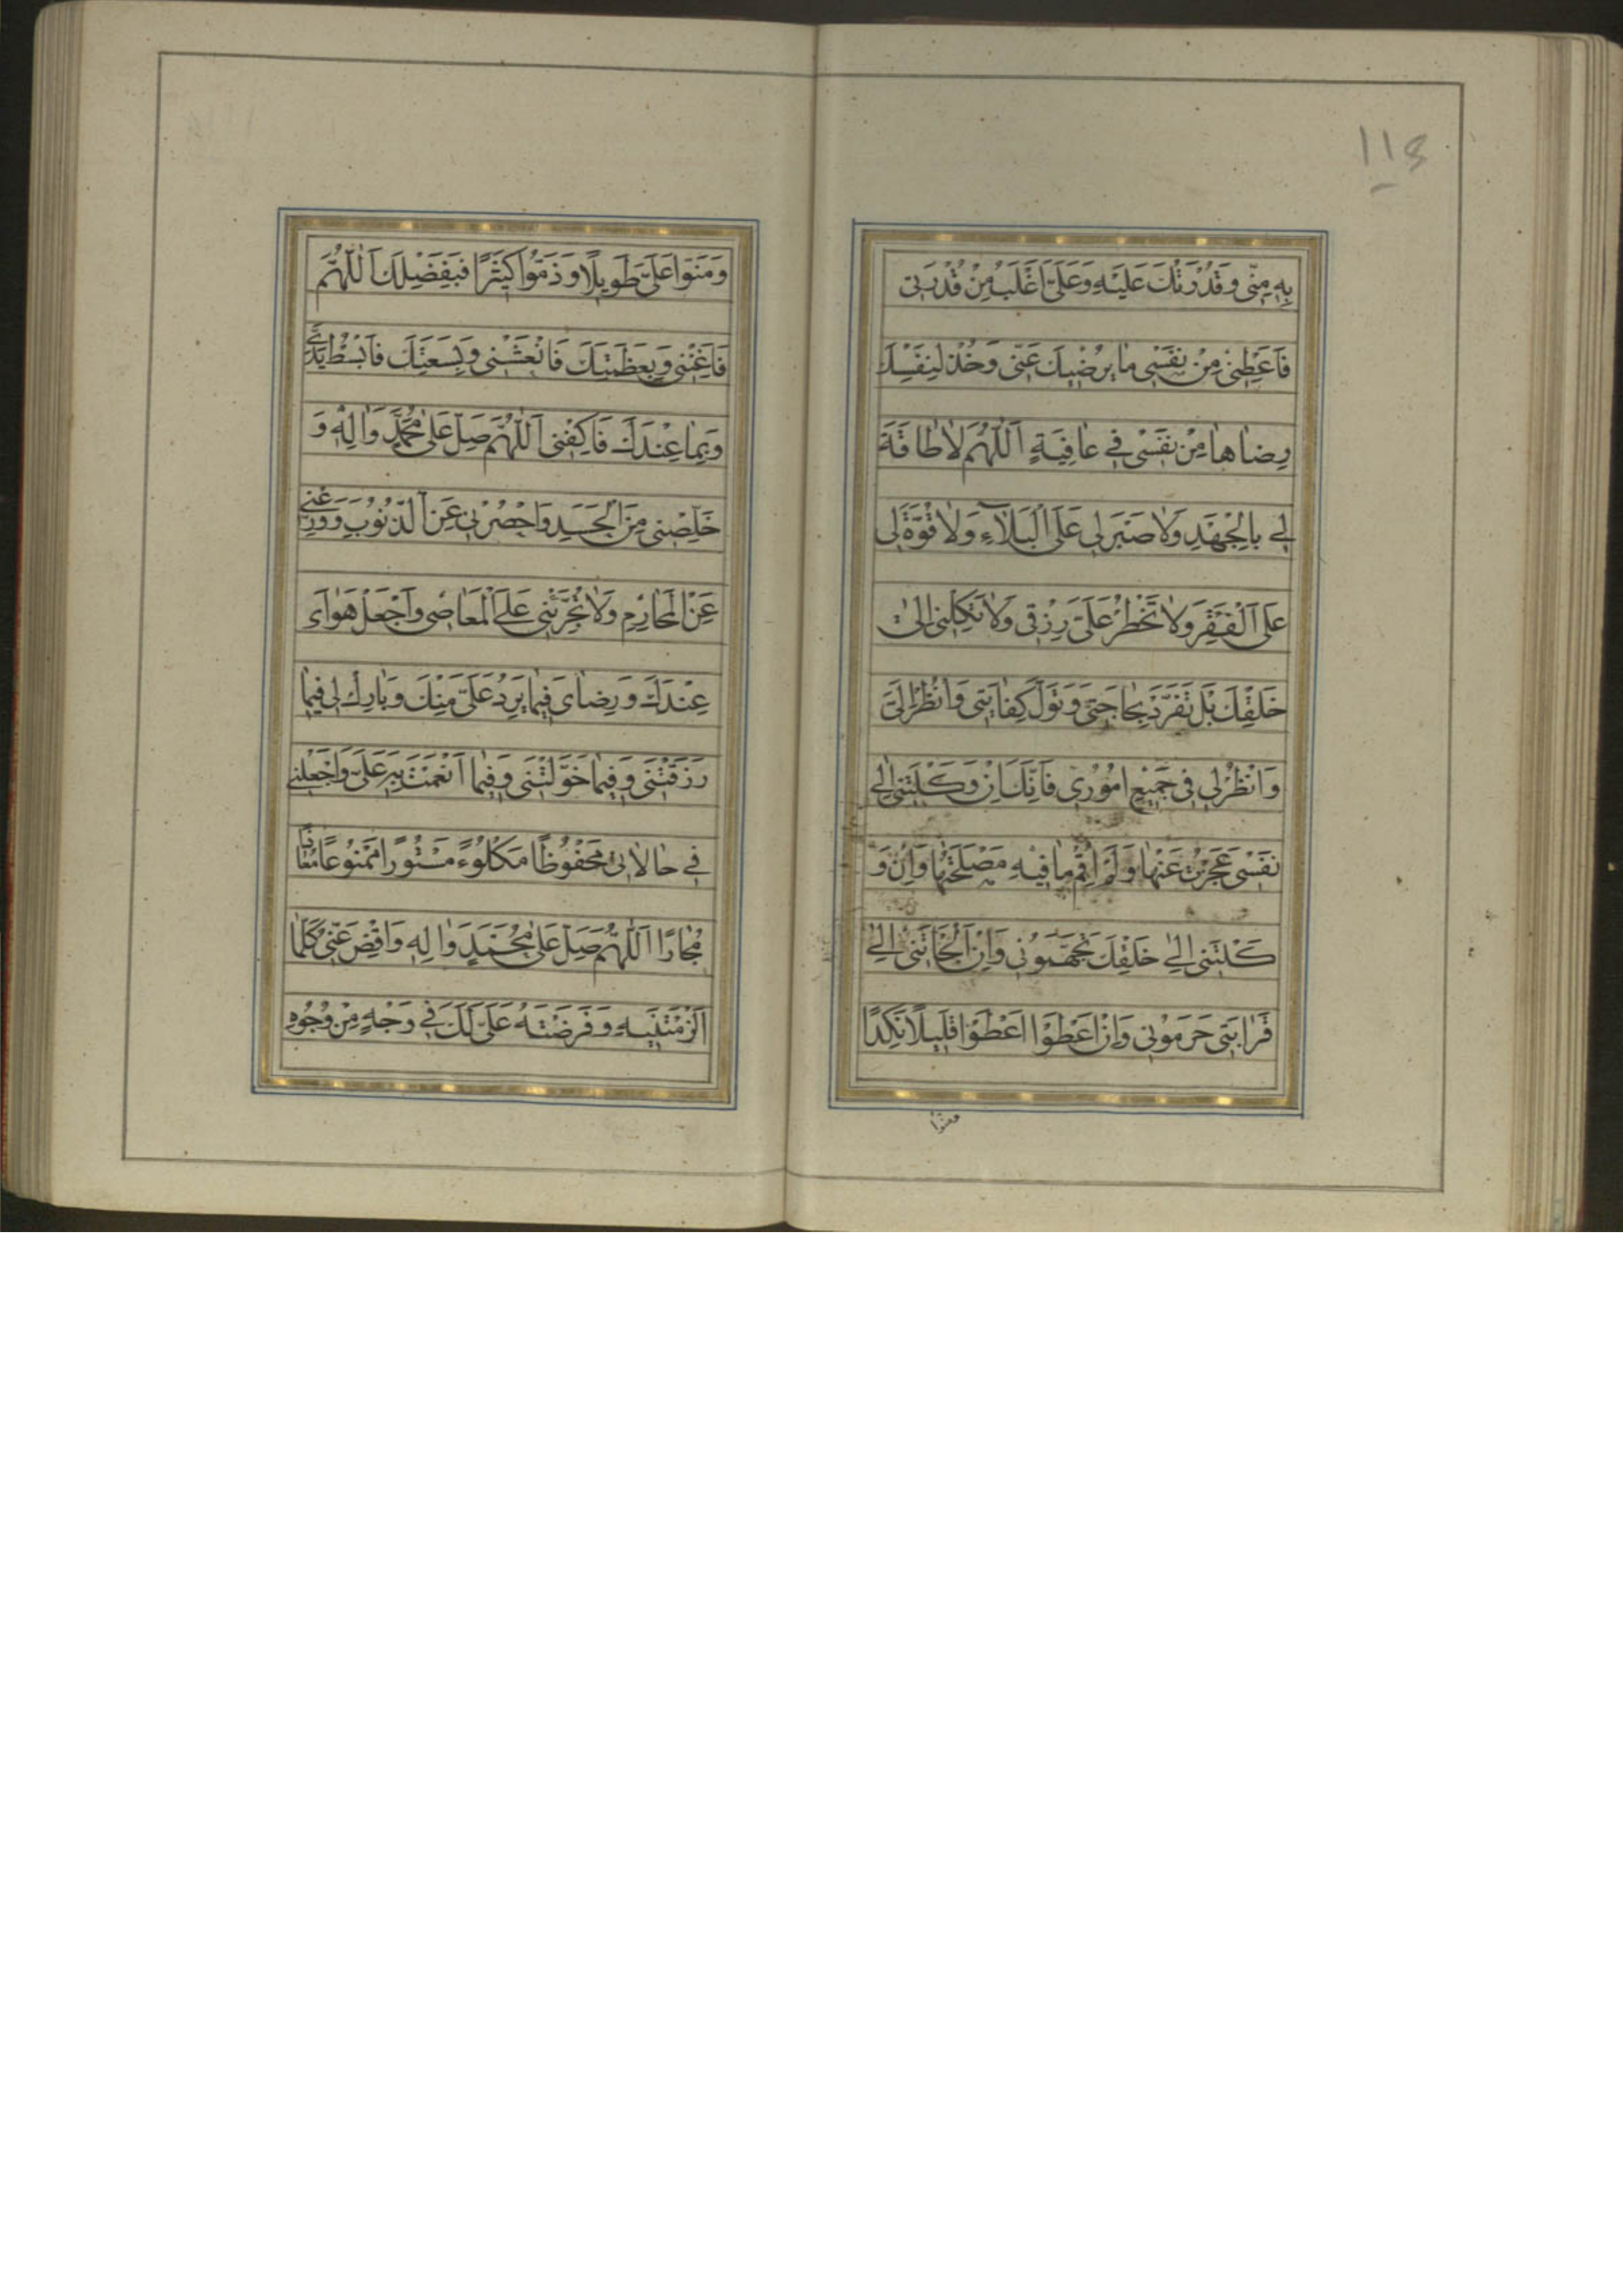 ١١٤
بِهِ مِنّى وَقُدْرَتُكَ عَلَيْهِ وَعَلَىَّ اَغْلَبُ مِنْ قُدْرَتى
فَاَعْطِنى مِنْ نَفْسى ما يُرْضيكَ عَنّى وَخُذْ لِنَفْسِكَ
رِضاها مِنْ نَفْسى فى عافِيَةٍ اَللّهُمَّ لا طاقَةَ
لى بِالْجَهْدِ وَلا صَبْرَ لى عَلَى الْبَلاءِ وَلا قُوَّةَ لى
عَلَى الْفَقْرِ وَلا تَحْظُرْ عَلَىَّ رِزْقى وَلا تَكِلْنى اِلى
خَلْقِكَ بَلْ تَفَرَّدْ بِحاجَتى وَتَوَلَّ كِفايَتى وَانْظُرْ اِلَىَّ
وَانْظُرْ لى فى جَميعِ اُمُورى فَاِنَّكَ اِنْ وَكَلْتَنى اِلى
نَفْسى عَجَزْتُ عَنْها وَلَمْ اُقِمْ ما فيهِ مَصْلَحَتُها وَاِنْ وَ
كَلْتَنى اِلى خَلْقِكَ تَجَهَّمُونى وَاِنْ اَلْجَأْتَنى اِلى
قَرابَتى حَرَمُونى وَاِنْ اَعْطَوْا اَعْطَوْا قَليلًا نَكِدًا
ومنوا
وَمَنُّوا عَلَىَّ طَويلًا وَذَمُّوا كَثيرًا فَبِفَضْلِكَ اَللّهُمَّ
فَاَغْنِنى وَبِعَظَمَتِكَ فَانْعَشْنى وَبِسَعَتِكَ فَابْسُطْ يَدى
وَبِما عِنْدَكَ فَاكْفِنى اَللّهُمَّ صَلِّ عَلى مُحَمَّدٍ وَالِهِ وَ
خَلِّصْنى مِنَ الْحَسَدِ وَاحْصُرْنى عَنِ الذُّنُوبِ وَوَرِّعْنى
عَنِ الْمَحارِمِ وَلا تُجَرِّئْنى عَلَى الْمَعاصى وَاجْعَلْ هَواىَ
عِنْدَكَ وَرِضاىَ فيما يَرِدُ عَلَىَّ مِنْكَ وَبارِكْ لى فيما
رَزَقْتَنى وَفيما خَوَّلْتَنى وَفيما اَنْعَمْتَ بِهِ عَلَىَّ وَاجْعَلْنى
فى حالاتى مَحْفُوظًا مَكْلُوءً مَسْتُورًا مَمْنُوعًا مُعاذًا
مُجارًا اَللّهُمَّ صَلِّ عَلى مُحَمَّدٍ وَالِهِ وَاقْضِ عَنّى كُلَّما
اَلْزَمْتَنيهِ وَفَرَضْتَهُ عَلَىَّ لَكَ فى وَجْهٍ مِنْ وُجُوهِ